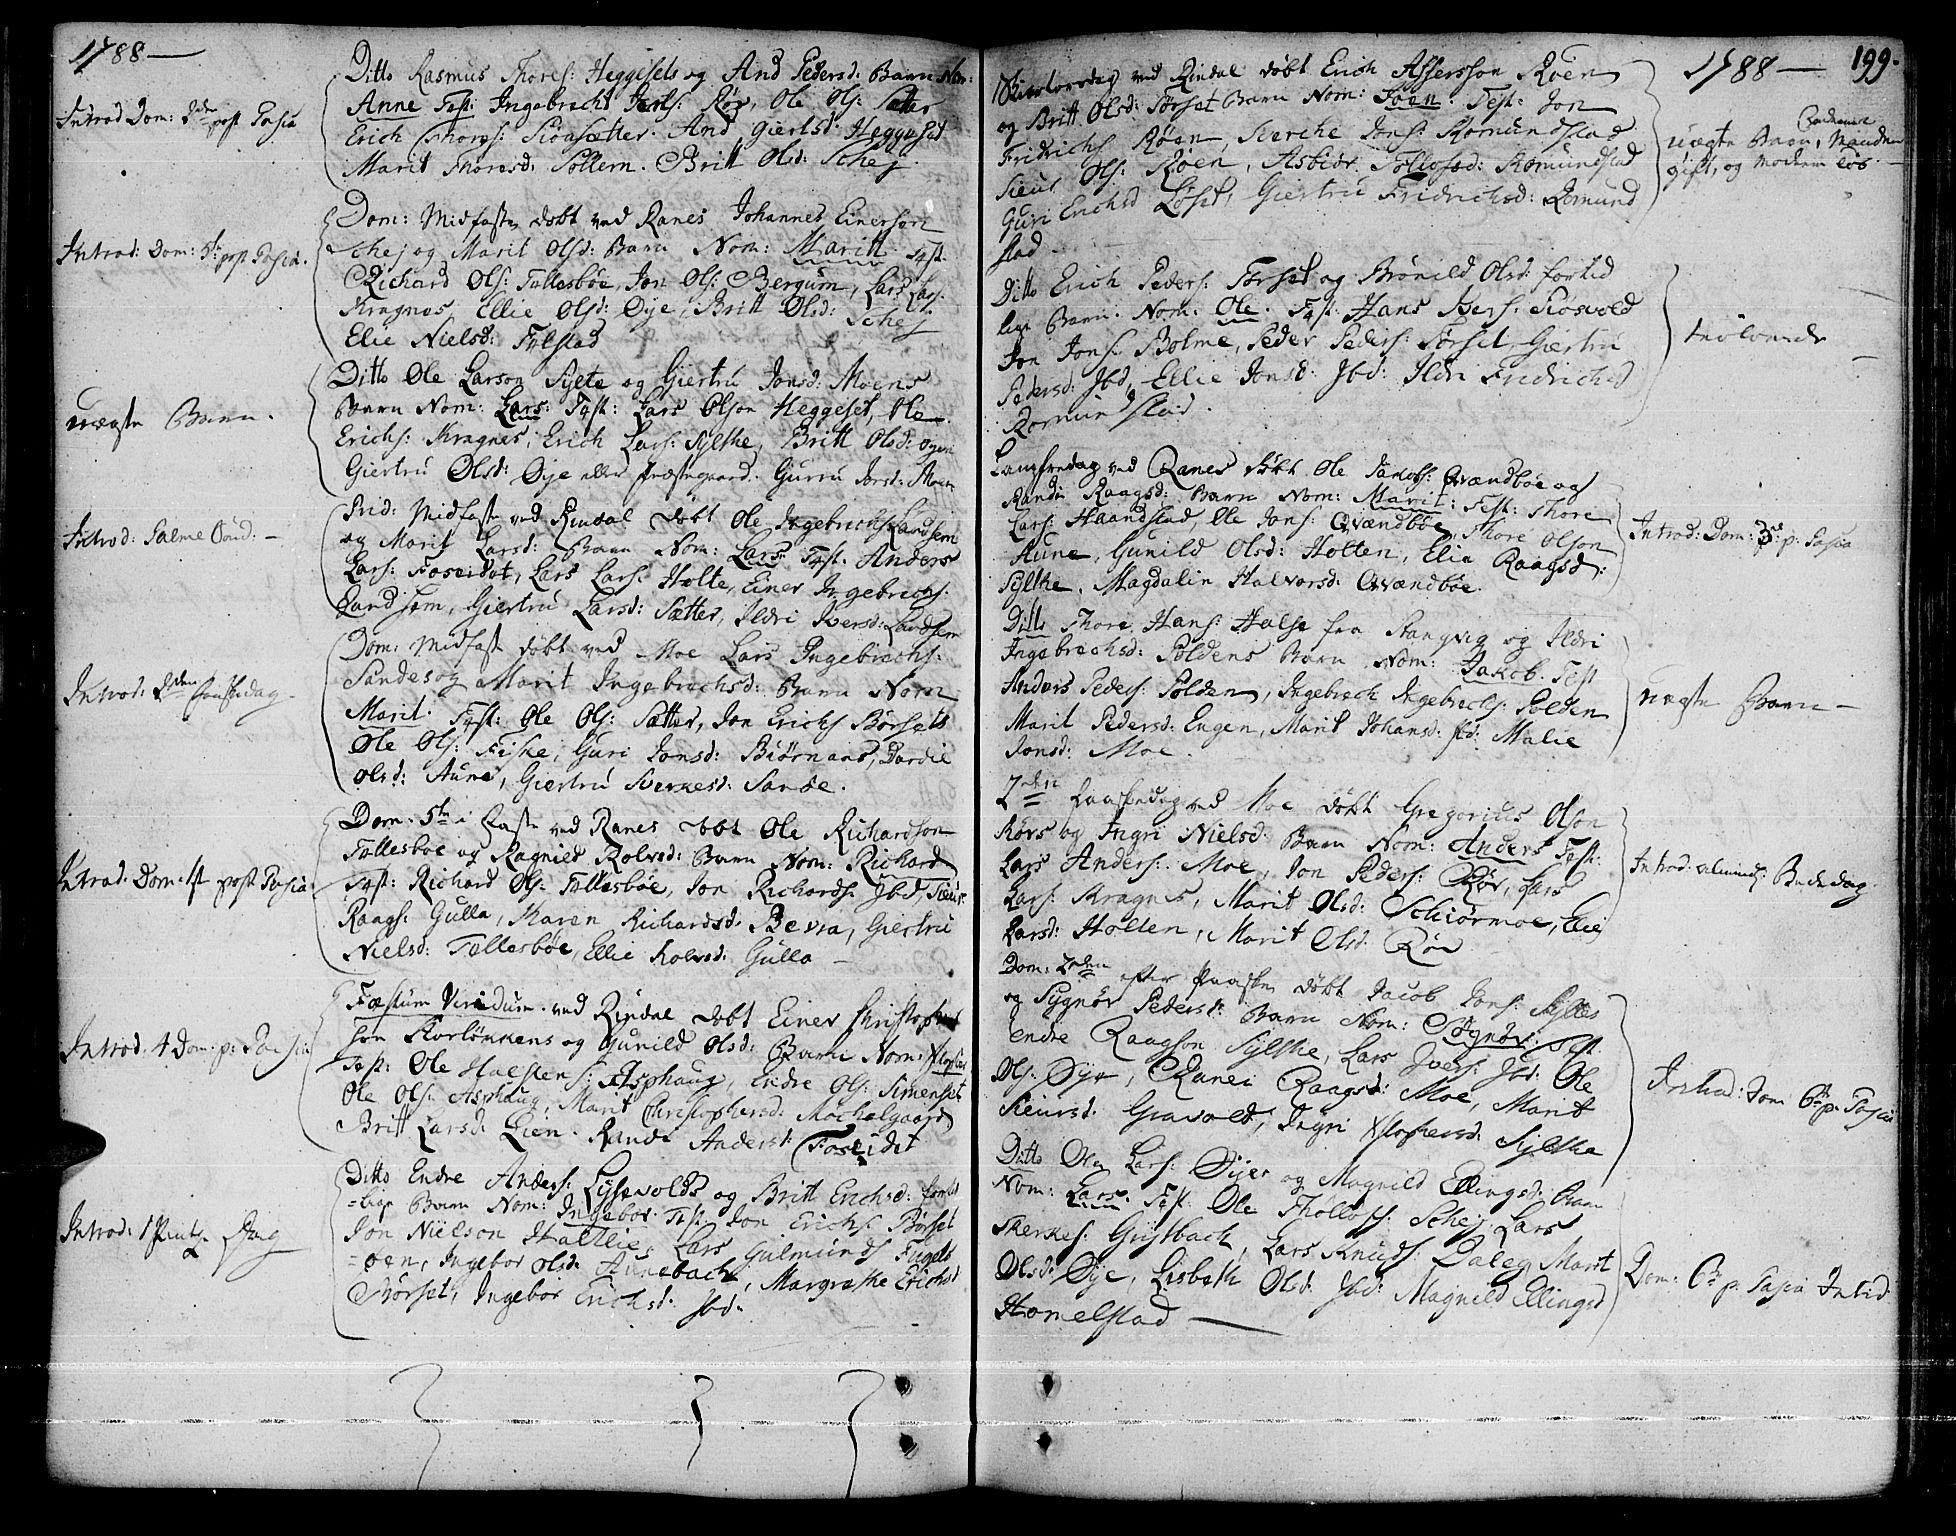 1788 —
Introd Dom: 2den post Pasca
Ditto Rasmus Thores: Heggisets og And Peders: Barn Nom:
Anne Test: Ingebrecht Joens: Röv, Ole Ols: Sætter
Erich Thores: Sætter. And Gierts: Heggeset
Marit Thoresd: Sollem. Britt Olsd: Schej
Introd: Dom: 5te post Pascá.
Dom: Midfaste döbt ved Ranes Johannes Einersøn
Schej og Marit Olsd: Barn Nom: Maritt Test:
Richard Ols: Tallesböe, Jon Ols: Bergum, Lars Lars:
Kragnes, Ellie Olsd: Öye, Britt Olsd: Schej
Elie Nielsd: Fylstad
uægte Barn.
Ditto Ole Larson Sylte og Giertru Jonsd: Moens
Barn Nom: Lars: Test: Lars Olson Heggeset, Ole
Erichs: Kragnes, Erich Lars: Sylthe, Britt Olsd:
Giertru Olsd: Öye eller Præstegaard. Gurru Jonsd: Moen
Introd: Palme Sönd: —
Prid: Midfaste ved Rindal döbt Ole Ingebrechs: Landsem
og Marit Larsd: Barn Nom: Lars Test: Anders
Lars: Foseidet, Lars Lars: Holte, Einer Ingebrechs:
Landsem, Giertru Larsd: Sætter, Ildri Iversd: Landsem
Introd: 2den Paaskedag
Dom: Midfaste döbt ved Moe Lars Ingebrechs:
Sandes og Marit Ingebrechsd: Barn Nom
Marit. Test: Ole Ols: Sætter, Jon Erichs Börsets
Ole Ols: Feiske, Guri Jonsd: Biörnaas, Dordie
Olsd: Aune, Giertru Sverkesd: Sande.
Introd: Dom: 1st post Pascá:
Dom: 5te i Faste ved Ranes döbt Ole Richardson
Tallesboe og Ragnild Rolvsd: Barn Nom: Richard
Test: Richard Ols: Tallesböe, Jon Richards: Ibd, Sivr
Raags: Gulla, Karen Richardsd: Bevra, Giertru
Nielsd: Tallesböe, Ellie Rolvsd: Gulla —
Introd: 4 Dom: p: Pasca:
Festum Viridum. ved Rindal döbt Einer Christopher
sen Storlökkens og Gunild Olsd: Barn Nom:
Test: Ole Halstens: Asphaug, Endre Ols: Simenset
Ole Ols: Asphaug, Marit Christophersd: Mochelgaard
Britt Larsd: Lien. Rande Andersd: Foseidet
Introd: 1 Pintse Dag
Ditto Endre Anders: Lysevolds og Britt Erichsd: fortid
=lige Barn Nom: Ingebor. Test: Jon Erichs: Börset
Jon Nielson Haltlie, Lars Gulmunds Fugels
=öen, Ingebor Olsd: Aunebach, Margrethe Erichsd
Börset, Ingebor Erichsd: Ibd:
1788 — 199.
Skiertorsdag ved Rindal döbt Erich Assersson Röen
og Britt Olsd: Sörset Barn Nom: Joen. Test: Jon
Fridrichs Röen, Sverche Jons: Romundstad
Sivert Ols: Röen, Asbiör Tollofsd: Romundstad
Guri Erichsd Löset, Giertru Fridrichsd: Romund
stad
uægte Barn, Manden
gift, og Modern lös —
Ditto Erich Peders: Torset og Brönild Olsd: fortid
lige Barn. Nom: Ole. Test: Hans Iver: Siösvold
Jon Jons: Bolme, Peder Peders: Sörset. Giertru
Pedersd: Ibd. Ellie Jonsd: Ibd: Ildri Fridrichsd
Romundstad.
trolovede
Langfredag ved Ranes döbt Ole Jakobs: Qvændböe og
Randi Raagsd: Barn Nom: Marit: Test: Thore
Lars: Haandstad, Ole Jons: Qvændböe, Thore Olson
Aune, Gunild Olsd: Holten, Elie Raagsd:
Sylthe, Magdalin Halvorsd: Qvændböe.
Introd: Dom: 3de p: Pasca
Ditto Thore Hans: Halse fra Stangvig og Ildri
Ingebrechsd: Poldens Barn Nom: Jakob. Test
Anders Peders: Polden, Ingebrech Ingebrechs: Polden
Marit Pedersd: Engen, Marit Johansd: Ibd: Malie
Jonsd: Moe.
uægte Barn —
2den Paaskedag ved Moe döbt Gregorius Olson
Rövs og Ingri Nielsd: Barn Nom: Anders Test:
Lars Anders: Moe, Jon Peders: Röv, Lars
Lars: Kragnes, Marit Olsd: Schiörmoe, Elie
Larsd: Holten, Marit Olsd: Röv
Introd: alminds: Bededag.
Dom: 2den efter Paaske döbt Jacob Jons: Syltes
og Sygnör Pedersd: Barn Nom: Sygnör: Test:
Endre Raagson Sylthe, Lars Ivers: Ibd: Ole
Ols: Öye, Ranei Raagsd: Moe, Marit
Siversd: Gravold, Ingri Xtophersd: Sylthe
Introd: Dom 6te p: Pasca
Ditto Ole Lars: Öyes og Magnild Ellingsd: Barn
Nom: Lars. Test: Ole Thollofs: Schej, Lars
Sverkes: Gristbach, Lars Knuds: Dalen, Marit
Olsd: Öye, Lisbeth Olsd: Ibd: Magnild Ellingsd
Homelstad —
Dom: 6te p: Pasca Introd: